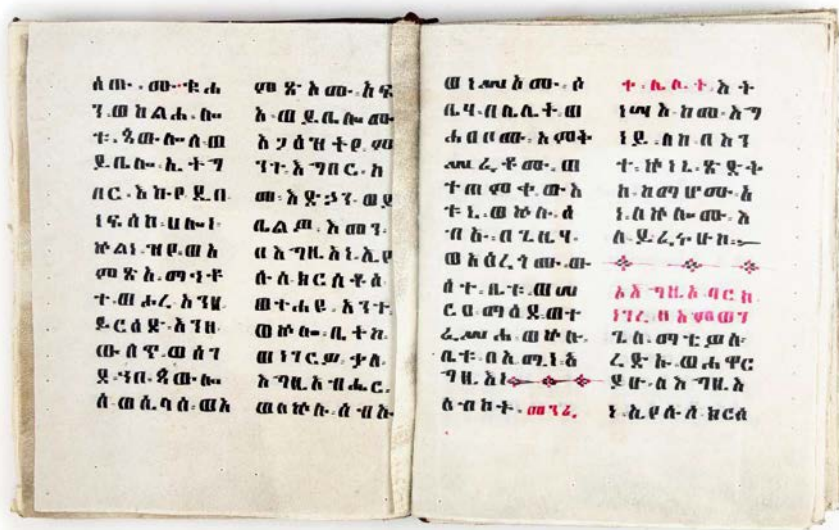 ሰጡ፡ ሙቁሐ
ን፡ ወከልሐ፡ ሎ
ቱ፡ ጳውሎስ፡ ወ
ይቤሎ፡ ኢትግ
በር፡ እኩየ፡ ዲበ፡
ነፍስከ፡ ሀሎነ፡
ኵልነ፡ ዝየ፡ ወአ
ምጽአ፡ ማኅቶ
ተ፡ ወሖረ፡ እንዘ
ይርዕድ፡ እንዘ
ውስጥ፡ ወሰገ
ደ፡ ኀበ፡ ጳውሎ
ስ፡ ወሲላስ፡ ወአ
ምጽኦሙ፡ አፍ
አ፡ ወይቤሎሙ
አጋዕዝትየ፡ ም
ንተ፡ እግበር፡ ከ
መ፡ እድኃን፡ ወይ
ቤልዎ፡ እመን፡
በእግዚእነ፡ ኢየ
ሱስ፡ ክርስቶስ፡
ወተሐዩ፡ አንተ፡
ወኵሉ፡ ቤትከ፡
ወነገርዎ፡ ቃለ፡
እግዚአብሔር፡
ወለኵሉ፡ ሰብአ፡
ወነሥኦሙ፡ ሶ
ቤሃ፡ በሌሊት፡ ወ
ሐፀቦሙ፡ እምት
ሥፈቶሙ፡ ወ
ተጠምቀ፡ ውእ
ቱኒ፡ ወኵሉ፡ ሰ
ብኡ፡ በጊዜሃ፡
ወአዕረጎሙ፡ ው
ስተ፡ ቤቱ፡ ወሠ
ርዐ፡ ማዕደ፡ ወተ
ፈሥሐ፡ ወኵሉ፡
ቤቱ፡ በአሚነ፡ እ
ግዚእነ
ስብከት፡ መንፈ
ተ፡ ሌሊት፡ እት
ነሣእ፡ ከመ፡ እግ
ነይ፡ ለከ፡ በእን
ተ፡ ኵነኔ፡ ጽድቅ
ከ፡ ከማሆሙ፡ ለ
ኵሎሙ፡ እ
ለ፡ ይፈርሁከ፡
አእግዚእ፡ ባርክ
ነገረ፡ ዘእምወን
ጊስ፡ ማቴዎስ፡
ረድኡ፡ ወሐዋር
ያሁ፡ ለእግዚእ
ነ፡ ኢየሱስ፡ ክርስ